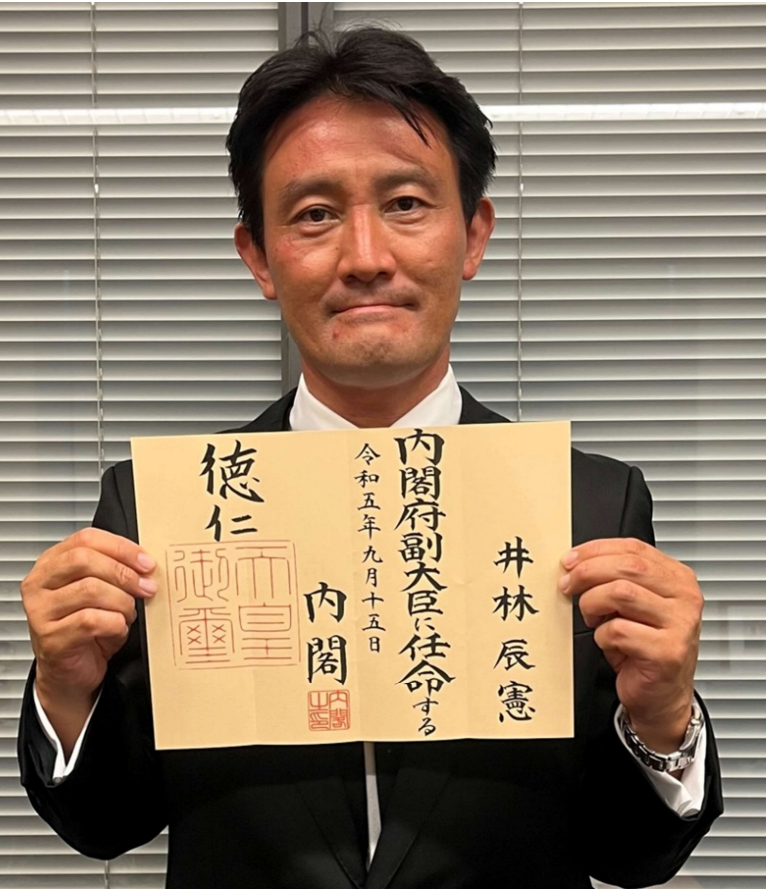 井林辰憲
内閣府副大臣に任命する
令和五年九月十五日
内閣
内閣之印
徳仁
天皇御璽